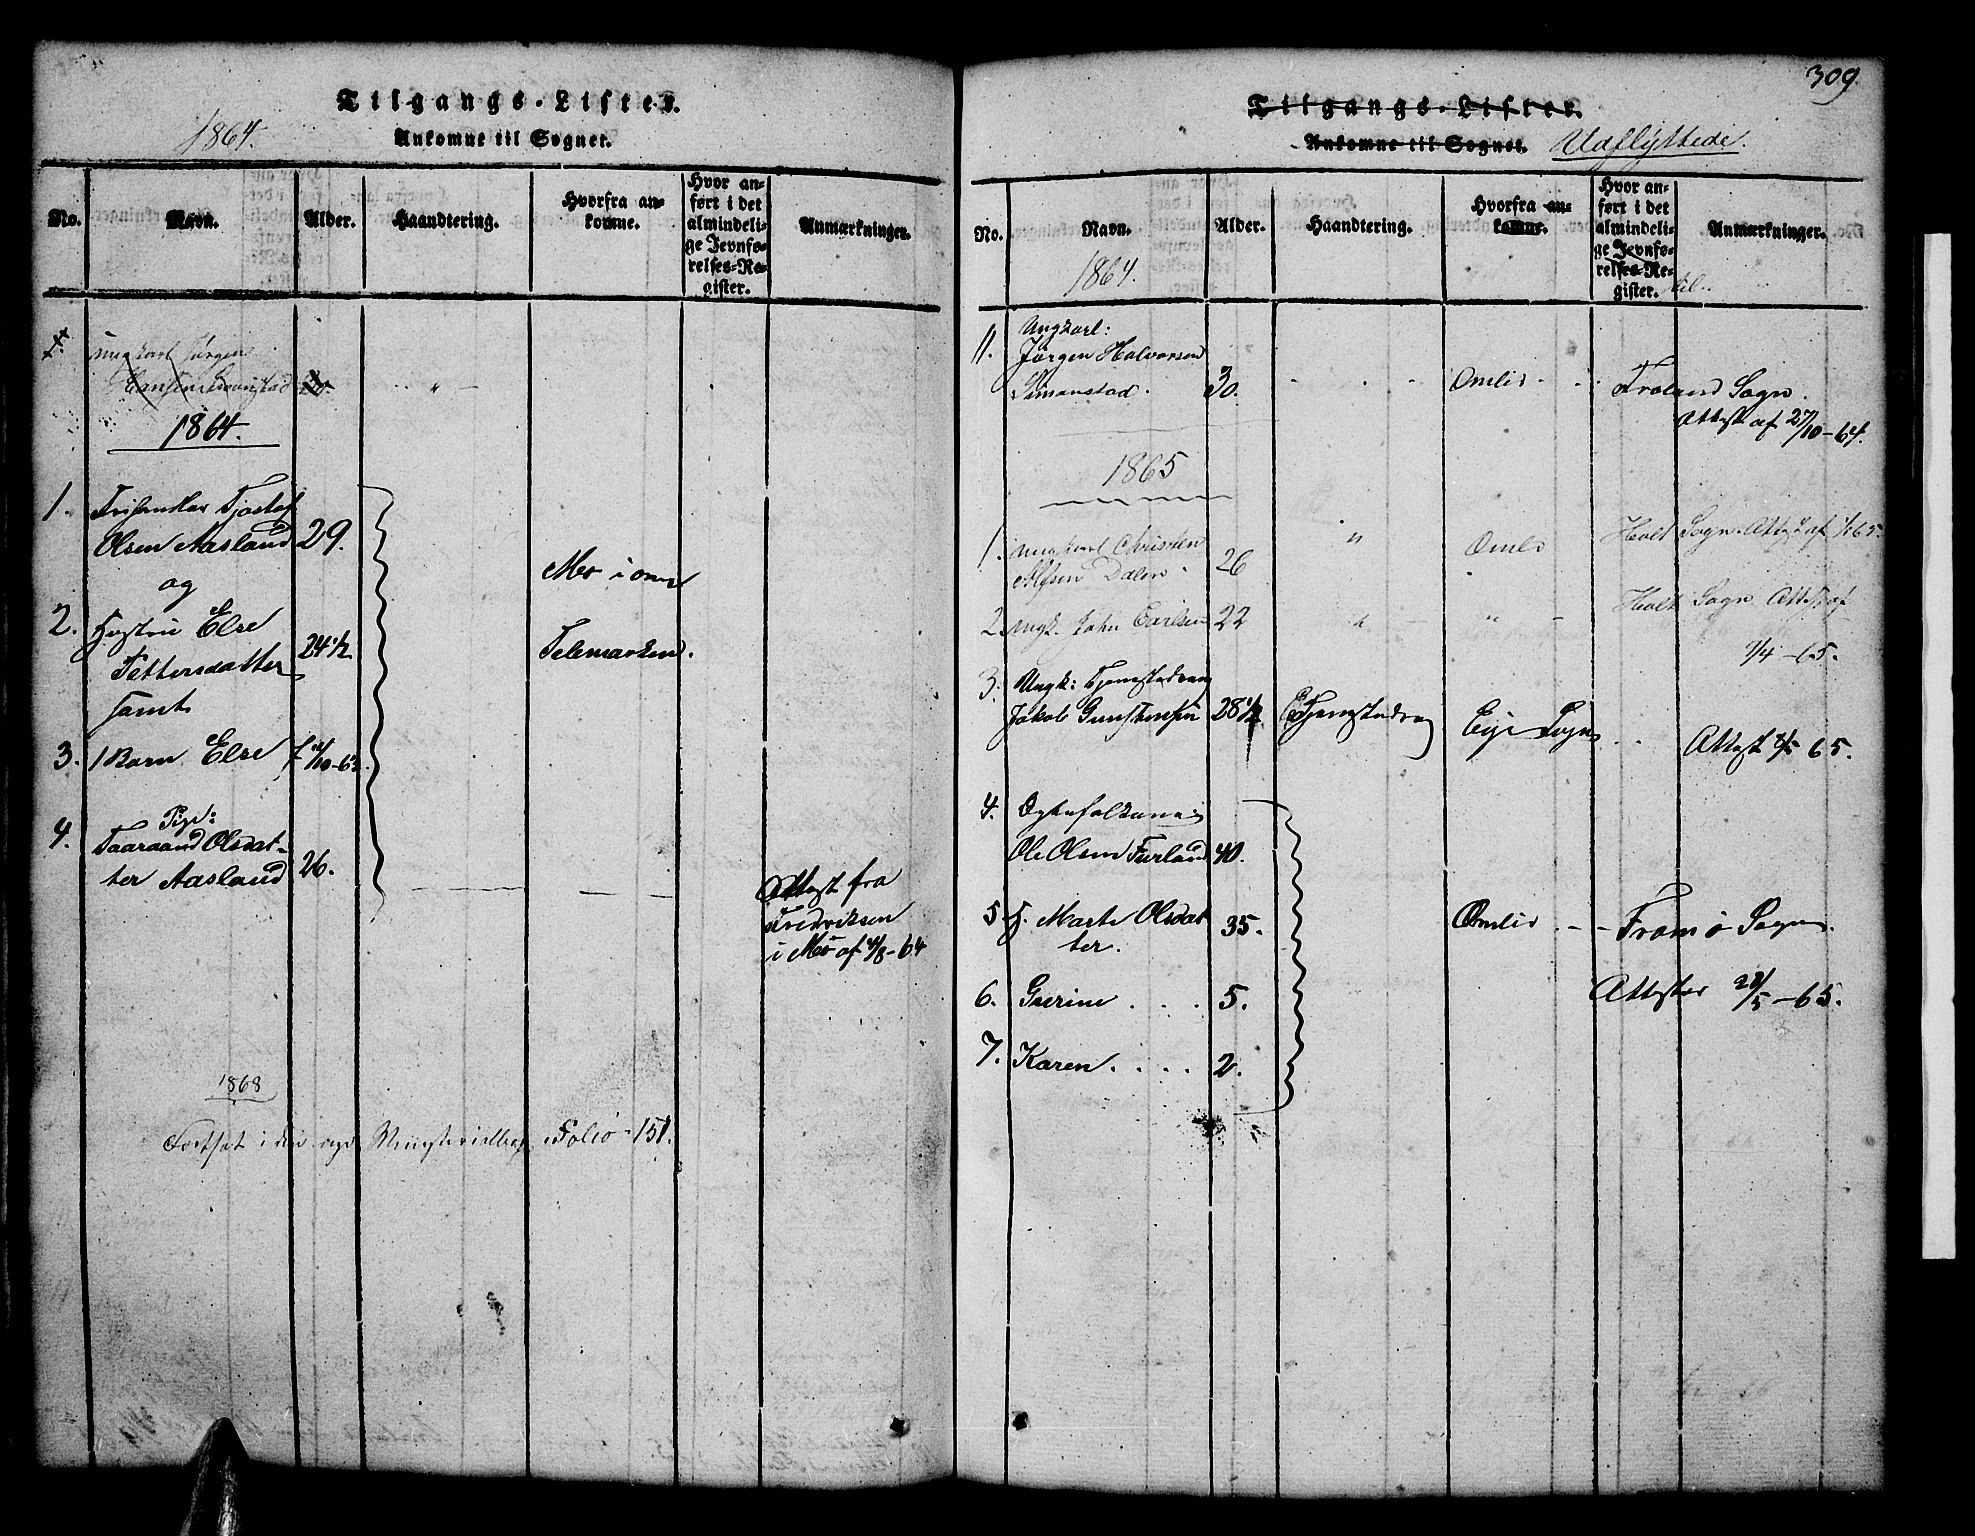 Tilgangs-Lister.
1864.
Ankomne til Sognet.
No.
Navn.
Alder.
Haandtering.
Hvorfra an-
komne.
Hvor an-
ført i det
almindeli-
ge Jevnfø-
relses-Re-
gister.
Anmærkninger.
Ungkarl Jørgen
20.
1864.
1.
Tjostaf
Olsen Aasland
29.
og
2.
Hustru Else
Pettersdatter
24 1/2
samt
Mo i øvre
Telemarken.
3.
1 Barn Else
4.
Pige:
Taaraand Olsdat-
ter Aasland
26.
Attest fra
Fredriksen
i Mo af 4/8-64
1868
Fortsat i den nye Ministerialbog Folio 151.
309
Tilgangs-Lister.
Ankomne til Sognet. Udflyttede.
No.
Navn.
Alder.
Haandtering.
Hvorfra an-
komne.
Hvor an-
ført i det
almindeli-
ge Jevnfø-
relses-Re-
gister.
Anmærkninger.
til.
1864.
11.
Ungkarl:
Jørgen Halvorsen
Simonstad.
30.
Omlid
Froland Sogn.
Attest af 27/10-64.
1865
1.
Ungkarl Christen
Dalen
26
"
Omli
Holt Sogn. Attest af
2.
Ungk. John Carlsen
22
"
Holt Sogn Attest af
1/4-65.
3.
Ungk: Tjenestedreng
Jakob Gunstensen
28 1/2
Tjenestedreng
Eije Sogn
Attest 65.
4.
Ægtefolkene
Ole Olsen Furland
40.
5
H. Marte Olsdat
ter.
35.
Omlid
Tromø Sogn.
6.
Gurine
5.
Attester 28/5-65.
7.
Karen
2.